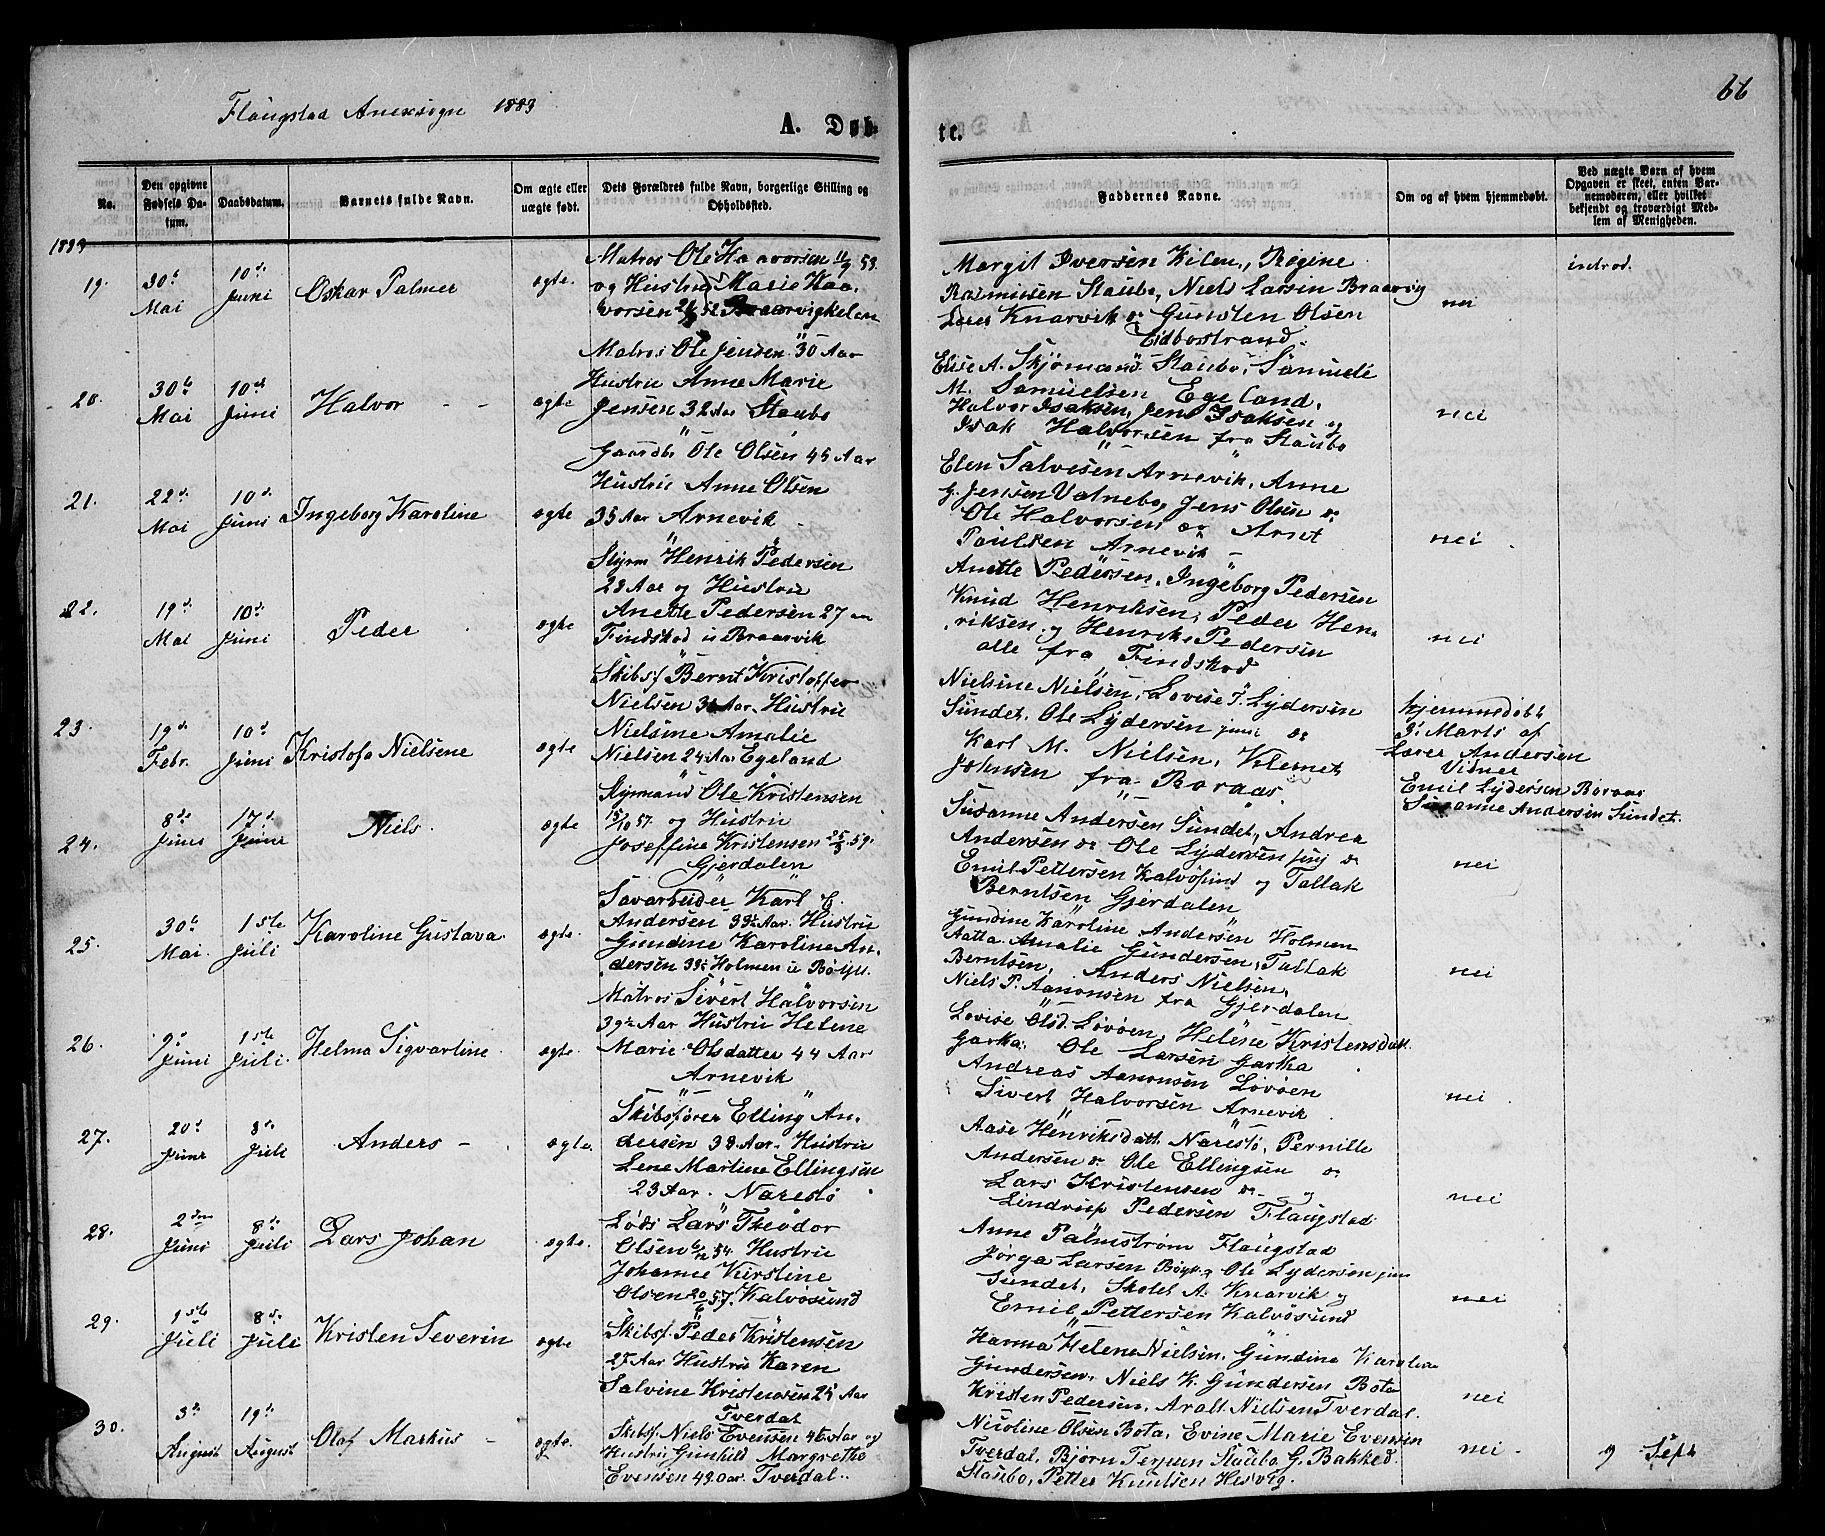 Flaugstad Anexsogn 1883
A. Døb-
te.
66
No.
Den opgivne Fødsels Da-tum.
Daabsdatum.
Barnets fulde Navn.
Om ægte eller uægte født.
Dets Forældres fulde Navn, borgerlige Stilling og Opholdssted.
Faddernes Navne.
Om og af hvem hjemmedøbt.
Ved uægte Børn af hvem Opgaven er skeet, enten Bar-nemoderen, eller hvilket bekjendt og troværdigt Med-lem af Menigheden.
1883
19.
30te Mai
10de Juni
Oskar Palmer
ægte.
Matros Ole Haavorsen 11/9 53
og Hustru Marie Haa-
vorsen Braarvigkelen
Margit Iversen Kilen, Regine
Rasmussen Staubø, Niels Larsen Braarvig
Lars Knarvik og Gunsten Olsen
Eidbostrand.
nei
introd.
20.
30te Mai
10de Juni
Halvor - -
ægte
Matros Ole Jensen 30 Aar
Hustru Anne Marie
Jensen 32 Aar Staubø
Else A. Skjømand Staubø, Samuele
M. Samuelsen Egeland,
Halvor Isaksen, Jens Isaksen og
Isak Halvorsen fra Staubø
nei
21.
22de Mai
10de Juni
Ingeborg Karoline
ægte
Gaardbr Ole Olsen 45 Aar
Hustru Anne Olsen
35 Aar Arnevik
Elen Salvesen Arnevik, Anne
G. Jensen Vatnebø, Jens Olsen og
Ole Halvorsen og Arnt
Paulsen Arnevik -
nei
22.
19de Mai
10de Juni
Peder
ægte
Styrm Henrik Pedersen
28 Aar og Hustru
Anette Pedersen 27 aar
Findskod u Braarvik
Anette Pedersen, Ingeborg Pedersen
Knud Henriksen, Peder Hen-
riksen og Henrik Pedersen
alle fra Findskod
nei
23.
19de Febr.
10de Juni
Kristofa Nielsene
ægte
Skibsf Bernt Kristoffer
Nielsen Aar. Hustru
Nielsine Amalie
Nielsen 24 Aar Egeland
Nielsine Nielsen, Lovise J. Lydersen
Sundet, Ole Lydersen jun og
Karl M. Nielsen, Klemet
Johnsen fra Boraas.
hjemmedøbt
9. Marts af
Lærer Andersen
Vidner
Emil Lydersen Boraas
Susanne Andersen Sundet.
24.
8de Juni
17de Juni
Niels.
ægte
Styrmand Ole Kristensen
15/10 57. og Hustru
Joseffine Kristensen 59.
Gjerdalen
Susanne Andersen Sundet, Andrea
Andersen og Ole Lydersen junj og
Emil Pettersen Kalvøsund og Tallak
Berntsen Gjerdalen
nei
25.
30te Mai.
1ste Juli
Karoline Gustava
ægte.
Savarbeider Karl E.
Andersen Aar. Hustru
Gundine Karoline An-
dersen Holmen u Bøljk.
Gundine Karoline Andersen Holmen
Aatta Amalie Gundersen, Tallak
Berntsen, Anders Nielsen,
Niels P. Aanonsen fra Gjerdalen
nei
26.
9de Juni
1ste Juli.
Helma Sigvartine
ægte.
Matros Sivert Halvorsen
39 Aar Hustru Helene
Marie Olsdatter 44 Aar
Arnevik
Lovise Olsd. Løvøen, Helene Kristensdatt.
Gartha, Ole Larsen Gartha
Andreas Aanonsen Løvøen
Sivert Halvorsen Arnevik.
nei
27.
20de Juni
8de Juli
Anders -
ægte.
Skibsfører Elling An-
dersen 38 Aar. Hustru
Lene Martine Ellingsen
23 Aar. Narestø
Aase Henriksdatt. Narestø, Pernille
Andersen og Ole Ellingsen og
Lars Kristensen og
Lindrup Pedersen Flaugstad.
nei
28.
2den Juni
8de Juli
Lars Johan
ægte.
Lods Lars Theodor
Olsen 6/12 54 Hustru
Johanne Kirstine
Olsen 57. Kalvøsund
Anne Palmstrøm Flaugstad
Jørga Larsen Ole Lydersen jun
Sundet, A. Knarvik og
Emil Pettersen Kalvøsund
nei
29.
1ste Juli
8de Juli
Kristen Severin
ægte
Skibsf. Peder Kristensen
27 Aar Hustru Karen
Salvine Kristensen 25 Aar
Tverdal
Hanna Helene Nielsen, Gundine Karoline
Gundersen, Niels K. Gundersen Bota
Kristen Pedersen, Aralt Nielsen Tverdal.
nei
30.
3de August
19de August
Olaf Markus -
ægte.
Skibsf. Niels Evensen 46 Aar og
Hustru Gunhild Margrethe
Evensen 49. Aar. Tverdal.
Nicoline Olsen Bota, Evine Marie Evensen
Tverdal, Bjørn Terpun Staubø G. Bakked
Staubø, Petter Knutsen Hesvig.
nei
9 Septr